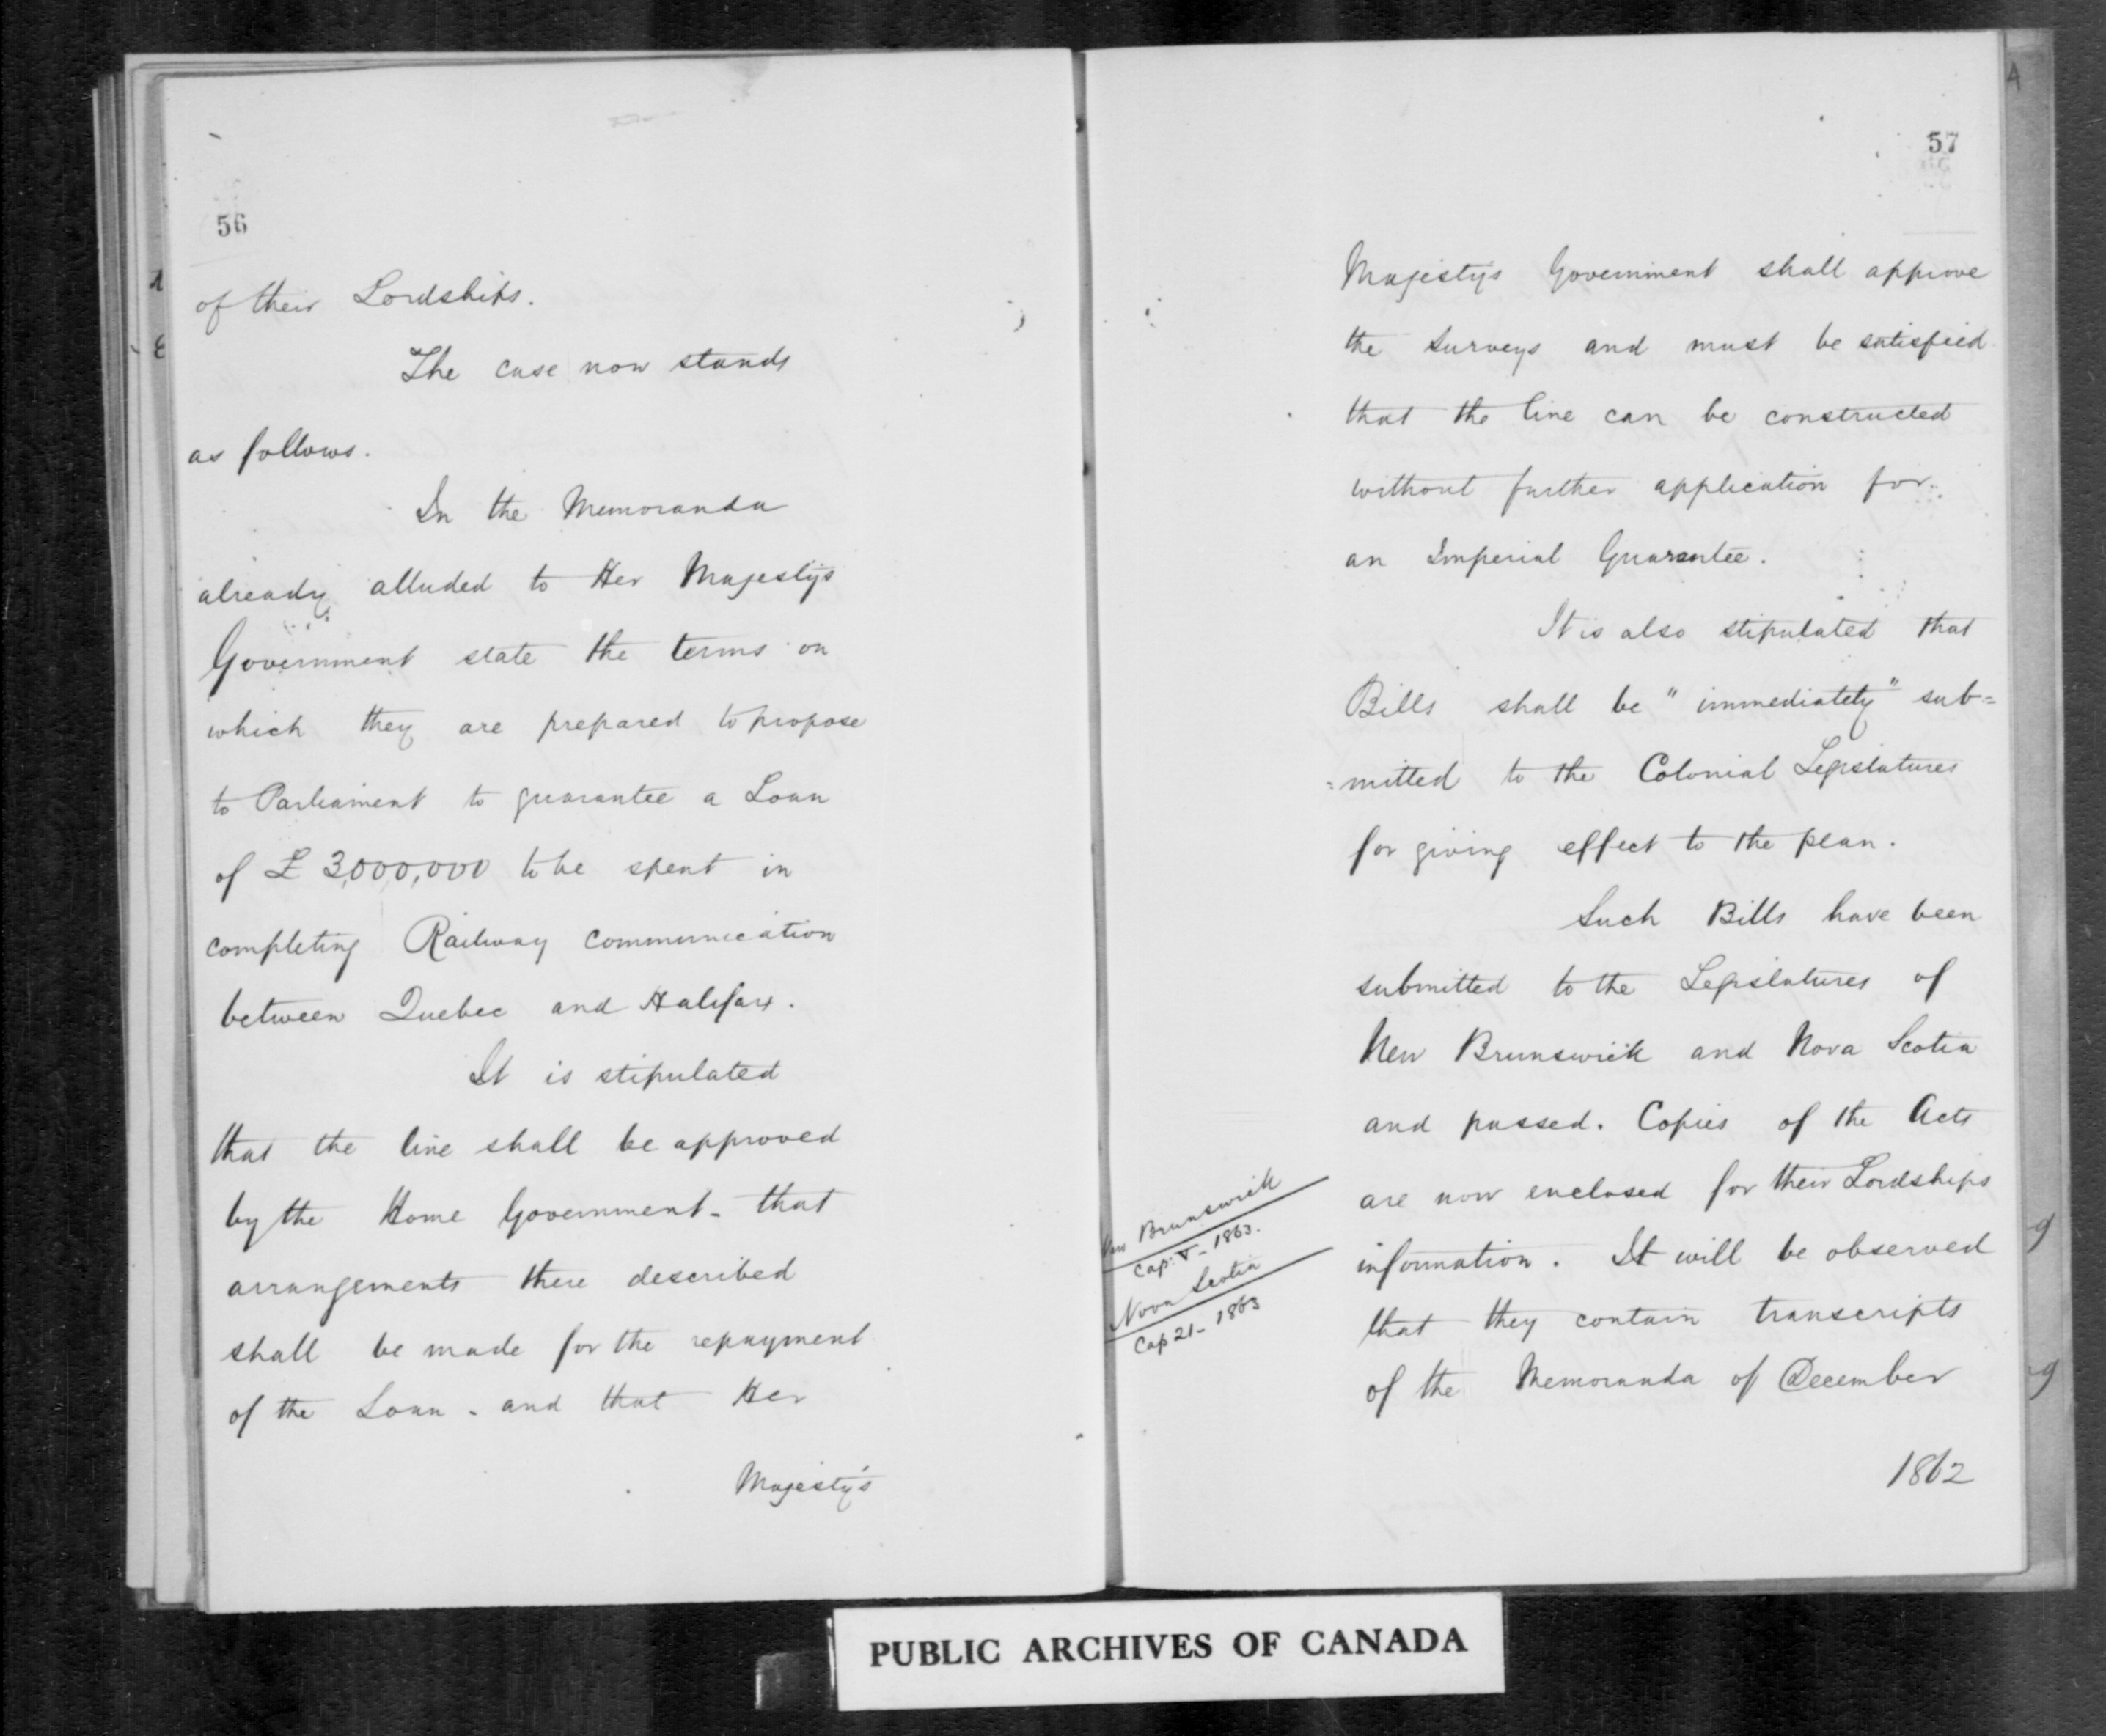 56
of their Lordships.
The case now stands
as follows.
In the Memoranda
already alluded to Her Majesty's
Government state the terms on
which they are prepared to propose
to Parliament to guarantee a Loan
of £ 3,000,000 to be spent in
completing Railway communication
between Quebec and Halifax.
It is stipulated
that the line shall be approved
by the Home Government - that
arrangements there described
shall be made for the repayment
of the Loan - and that Her
Majesty's
57
Majesty's Government shall approve
the surveys and must be satisfied
that the line can be constructed
without further application for
an Imperial Guarantee.
It is also stipulated that
Bills shall be "immediately" sub=
=mitted to the Colonial Legislatures
for giving effect to the plan.
Such Bills have been
submitted to the Legislatures of
New Brunswick and Nova Scotia
and passed. Copies of the Acts
are now enclosed for their Lordships
information. It will be observed
that they contain transcripts
of the Memoranda of December
1862
New Brunswick
Cap: - 1863.
Nova Scotia
Cap 21 - 1863
PUBLIC ARCHIVES OF CANADA